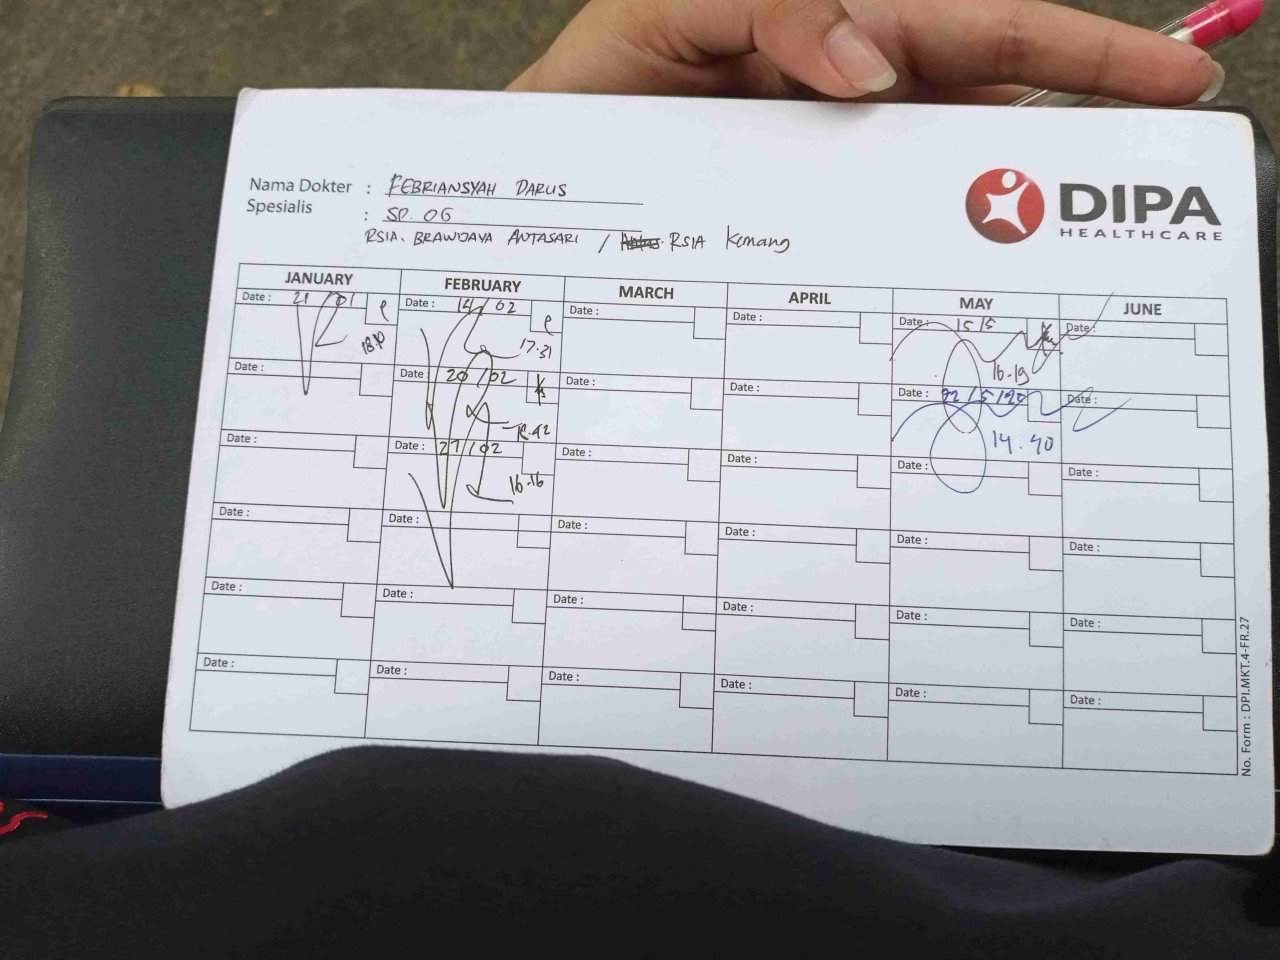 Nama Dokter : FEBRIANSYAH DARUS
Spesialis : SP. OG
RSIA. BRAWIJAYA ANTASARI / RSIA Kemang
DIPA
HEALTHCARE
JANUARY FEBRUARY MARCH APRIL MAY JUNE
Date : 21/01 Date : 14/02 Date : Date : Date : 15/5 Date :
17.31 16.19
Date : Date : 20/02 Date : Date : Date : 22/5/20 Date :
14.40
Date : Date : 27/02 Date : Date : Date : Date :
16.16
Date : Date : Date : Date : Date : Date :
Date : Date : Date : Date : Date : Date :
Date : Date : Date : Date : Date : Date :
No. Form : DPI.MKT.4-FR.27